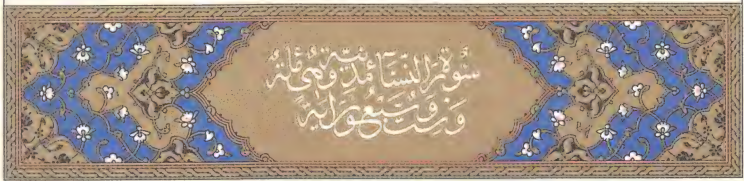 سورة النساء مدنية وهي مائة
وست وسبعون آية